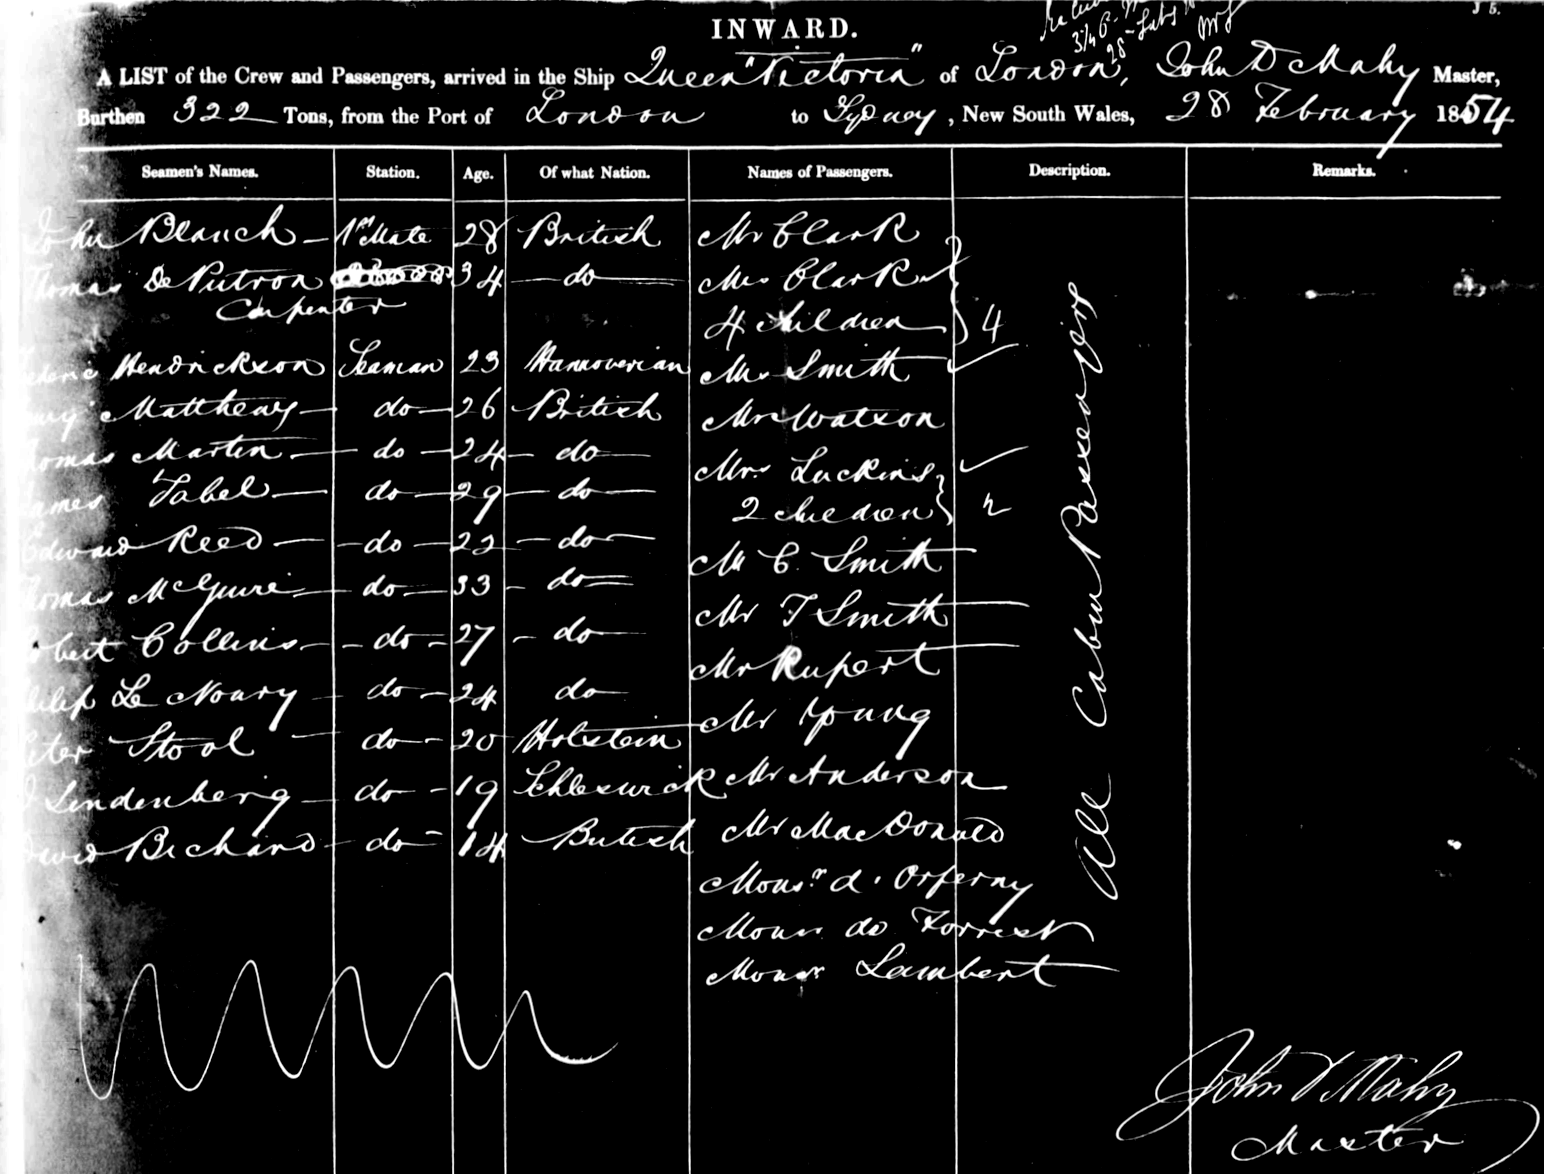 INWARD.
A LIST of the Crew and Passengers, arrived in the Ship Queen "Victoria" of London, John D Mahy Master,
Burthen 322 Tons, from the Port of London to Sydney, New South Wales, 28 February 1854
Seamen's Names. Station. Age. Of what Nation. Names of Passengers. Description. Remarks.
John Blanch 1st Mate 28 British Mr Clark
Thomas De Putron 34 do Mrs Clark
Carpenter 4 children 4
Hendrickson Seaman 23 Hannoverian Mrs Smith
Matthews do 26 British Mr Watson
Thomas Martin do 24 do Mrs Luckins
James Tabel do 29 do 2 children 2
Edward Reed do 22 do M C. Smith
Thomas McGuire do 33 do Mr T Smith
Robert Collins do 27 do Mr Rupert
Philip Le Noury do 24 do Mr Young
Peter Stool do 20 Holstein Mr Anderson
Lindenberig do 19 Schleswick Mr MacDonald
David Bichard do 14 British Monsr d'Orferny
Monsr de Forrest
Monsr Lambert
All Cabin Passengers
John D Mahy
Master